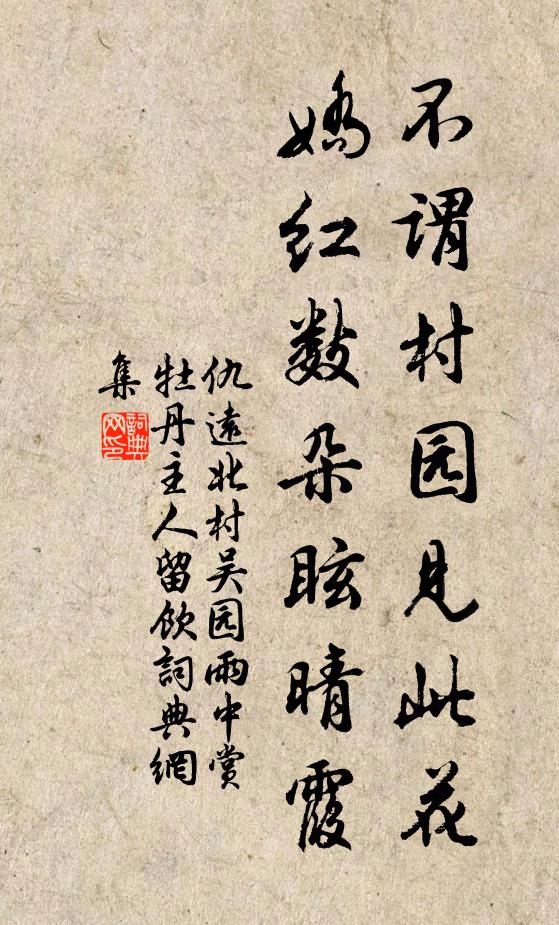 不谓村园见此花
娇红数朵眩晴霞
仇遠北村吴园雨中賞
牡丹主人留飲詞典網
集
詞典网印